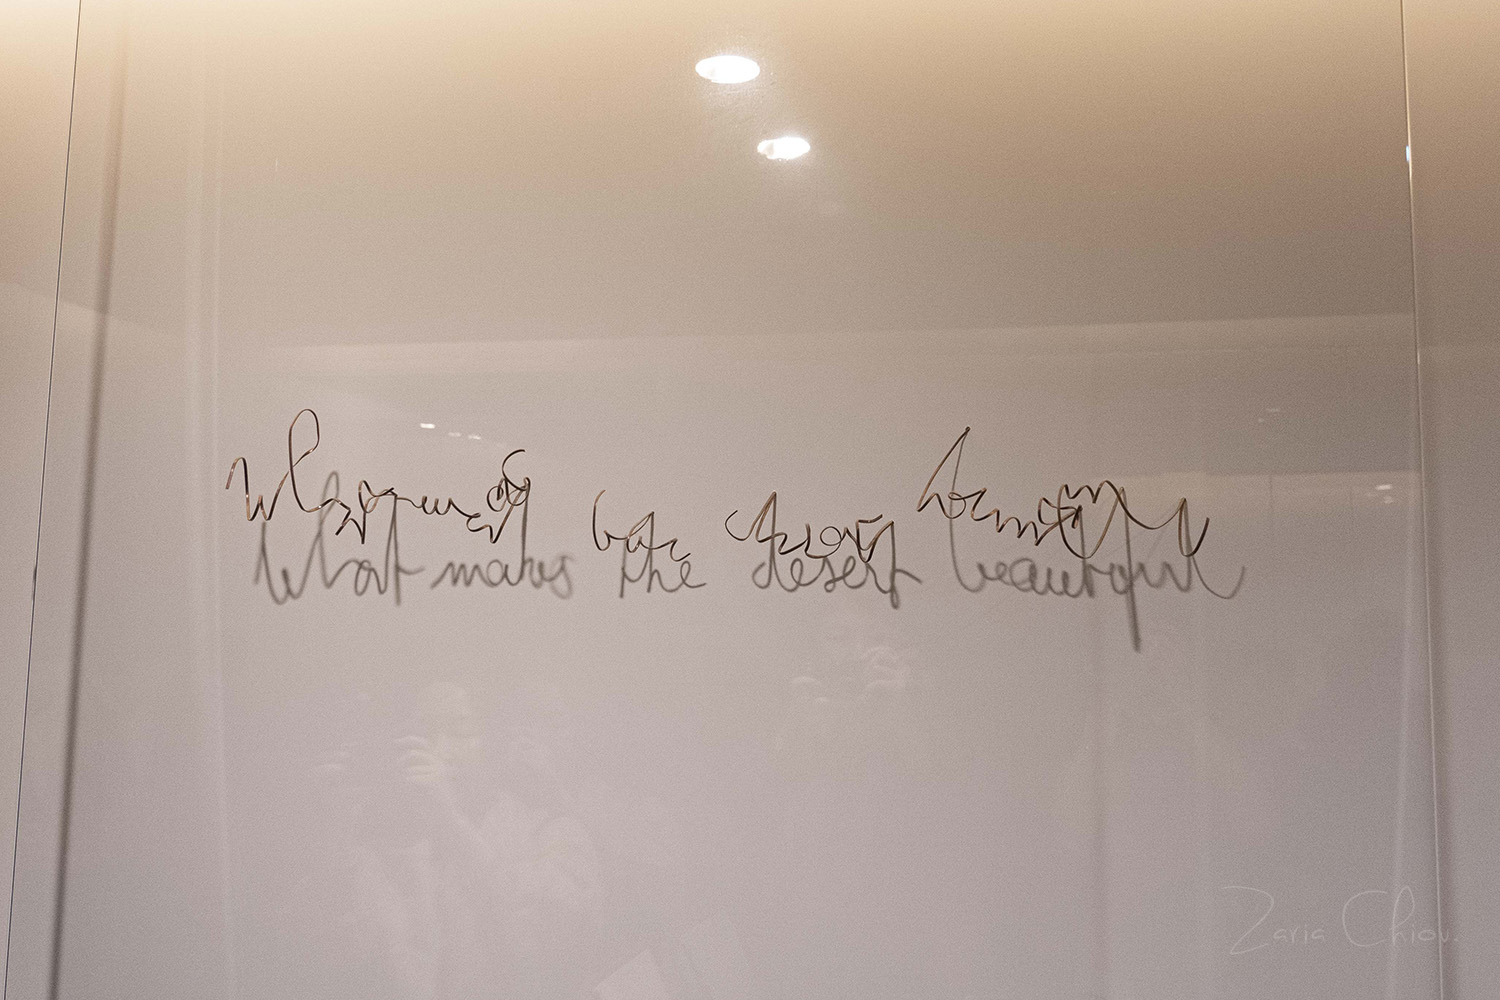 What makes the desert beautiful
Zaria Chiou.